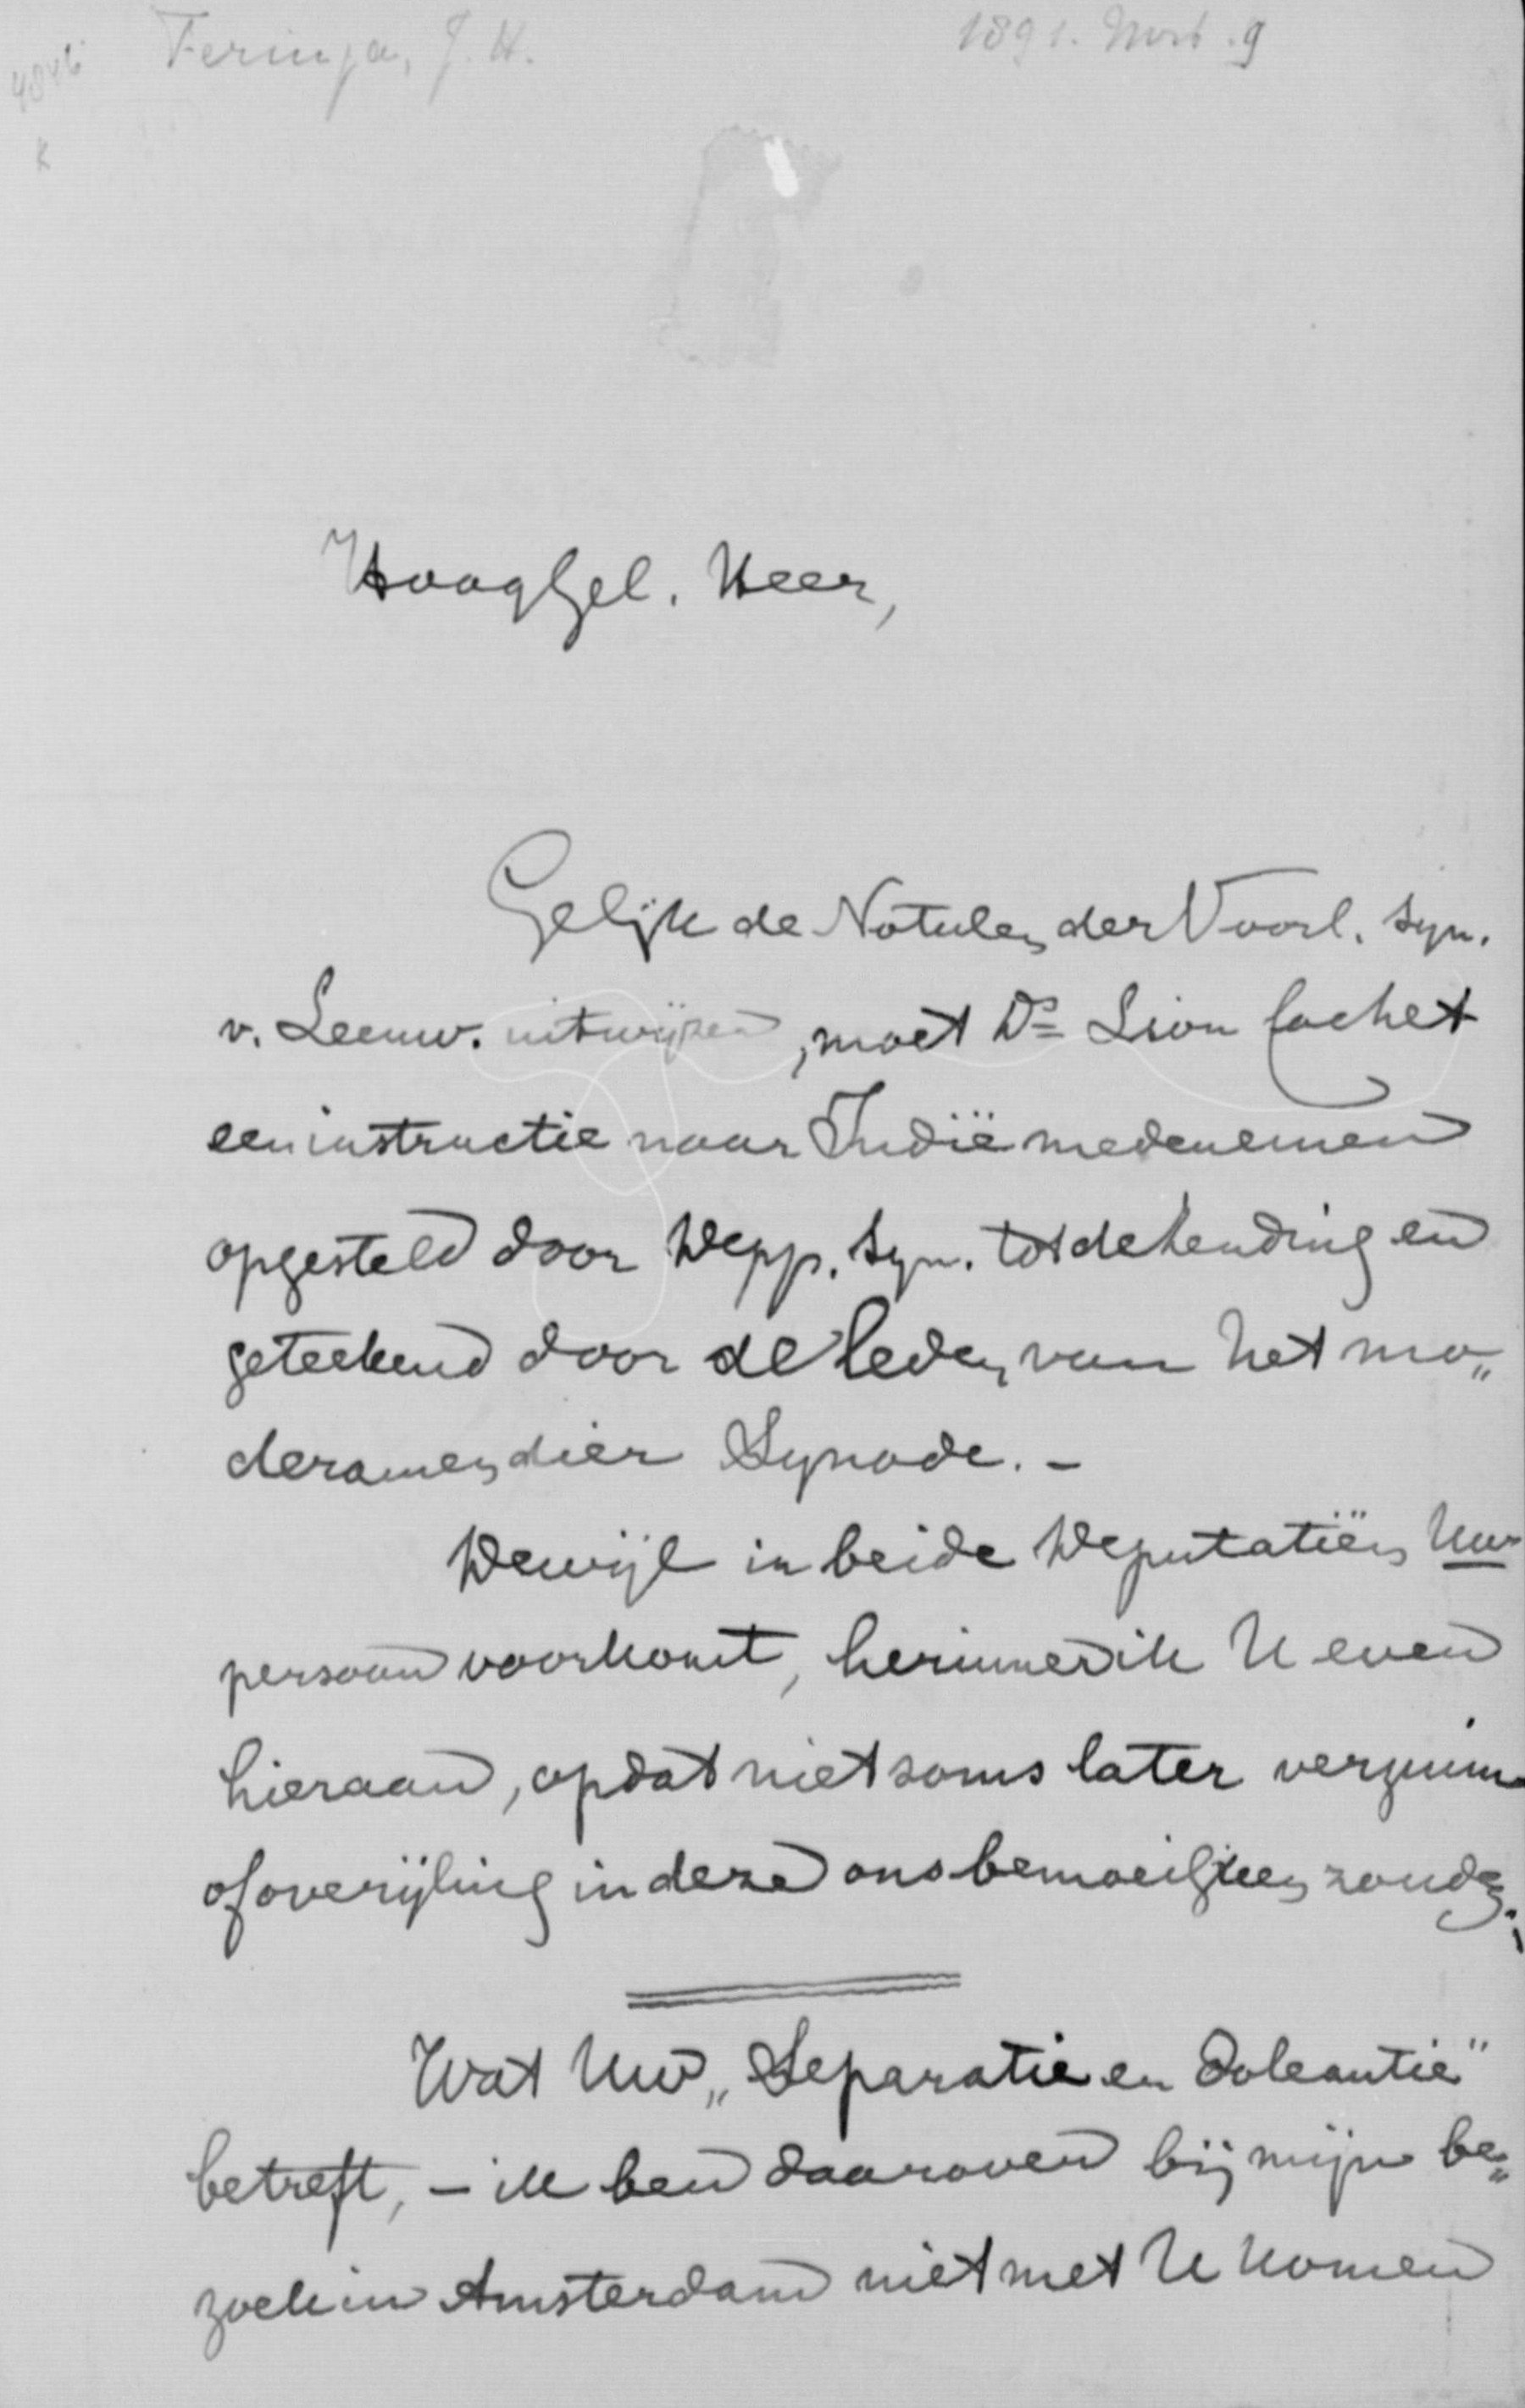 4846 Feringa, J. H. 1891. Nov. 9
K
HoogGel. Heer,
Gelijk de Notulen der Voorl. Syn.
v. Leeuw. uitwijzen, moet Ds Lion Cachet
een instructie naar Indië medenemen
opgesteld door Depp. Syn. tot de Zending en
geteekend door de leden van het mo„
deramen dier Synode. -
Dewijl in beide Deputatiën Uw
persoon voorkomt, herinner ik U even
hieraan, opdat niet soms later verzuim
of overijling in deze ons bemoeilijken zoude;
Wat Uw „Separatie en Doleantie"
betreft, - ik ben daarover bij mijn be„
zoek in Amsterdam niet met U komen